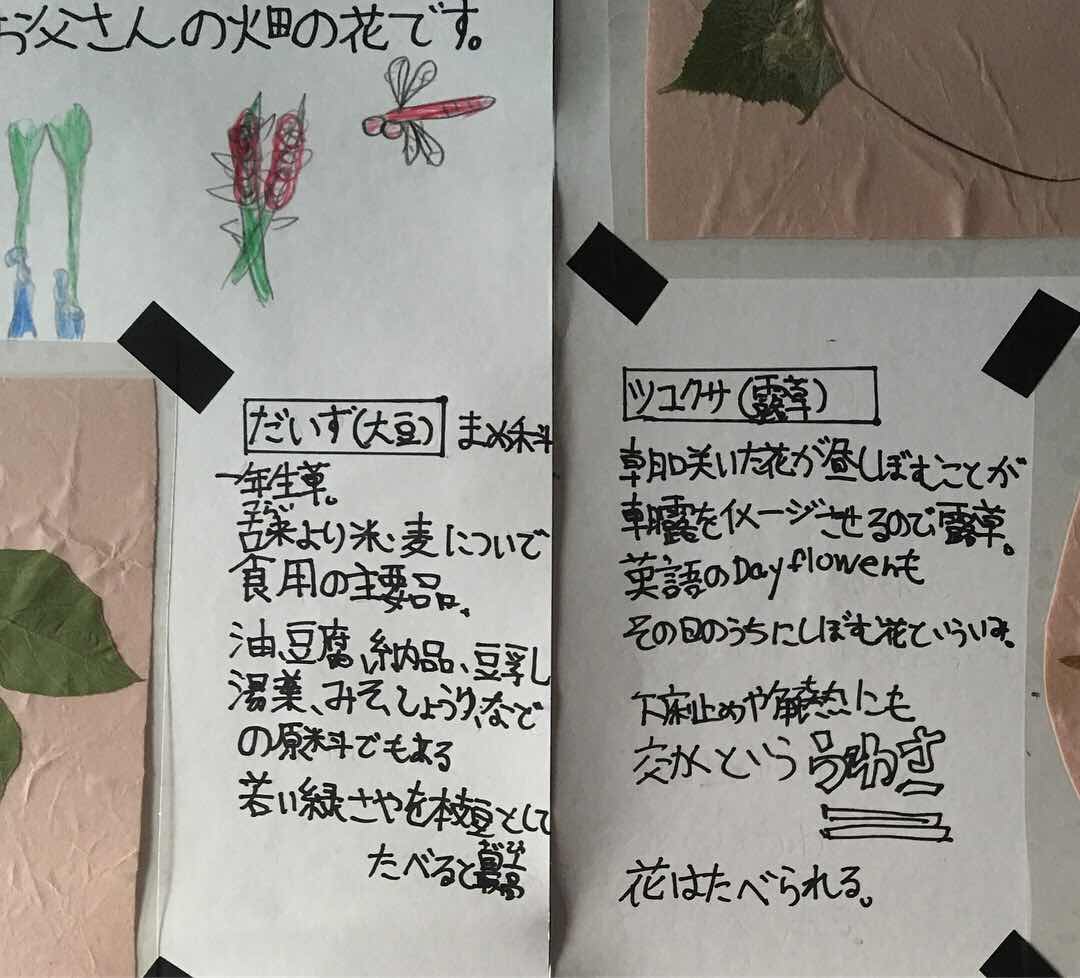 お父さんの畑の花です。
だいず(大豆) まめ科
一年生草。
古来より米・麦についで
食用の主要品。
油、豆腐、納品、豆乳し
湯葉、みそ、しょうゆ、など
の原料でもある
若い緑さやを枝豆として
たべると
ツユクサ(露草)
朝咲いた花が昼しぼむことが
朝露をイメージさせるので露草。
英語のDayflowerも
その日のうちにしぼむ花といういみ。
下痢止めや解熱にも
効くという うわさ
花はたべられる。